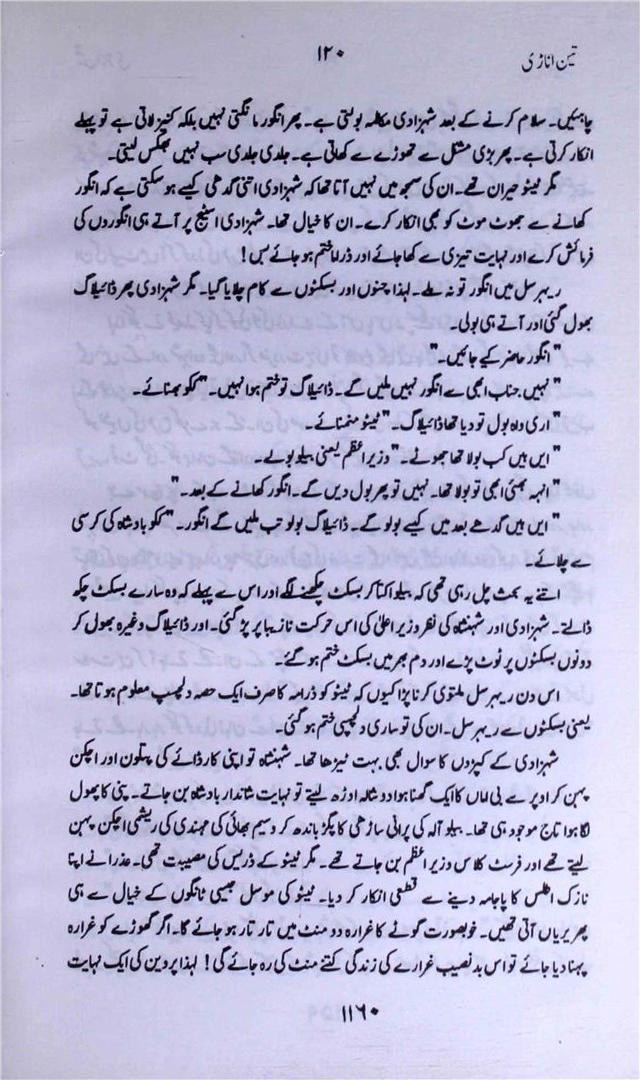 تین اناڑی
۱۲۰
چاہئیں۔ سلام کرنے کے بعد شہزادی مکالمہ بولتی ہے۔ پھر انگور مانگتی نہیں بلکہ کنیز لاتی ہے تو پہلے
انکار کرتی ہے۔ پھر بڑی مشکل سے تھوڑے سے کھاتی ہے۔ جلدی جلدی سب نہیں بھکس لیتی۔
مگر ٹیٹو حیران تھے۔ ان کی سمجھ میں نہیں آتا تھا کہ شہزادی اتنی گدھی کیسے ہو سکتی ہے کہ انگور
کھانے سے جھوٹ موٹ کو بھی انکار کرے۔ ان کا خیال تھا۔ شہزادی اسٹیج پر آتے ہی انگوروں کی
فرمائش کرے اور نہایت تیزی سے کھا جائے اور ڈراما ختم ہو جائے بس!
ریہرسل میں انگور تو نہ ملے۔ لہٰذا چنوں اور بسکٹوں سے کام چلایا گیا۔ مگر شہزادی پھر ڈائیلاگ
بھول گئی اور آتے ہی بولی۔
"انگور حاضر کیے جائیں۔"
"نہیں جناب ابھی سے انگور نہیں ملیں گے۔ ڈائیلاگ تو ختم ہوا نہیں۔" ککو بھنائے۔
"اری واہ بول تو دیا تھا ڈائیلاگ۔" ٹیٹو منمنائے۔
"ایں ہیں کب بولا تھا جھوٹے۔" وزیر اعظم یعنی ببلو بولے۔
"انہہ بھئی ابھی تو بولا تھا۔ نہیں تو پھر بول دیں گے۔ انگور کھانے کے بعد۔"
"ایں ہیں گدھے بعد میں کیسے بولو گے۔ ڈائیلاگ بولو تب ملیں گے انگور۔" ککو بادشاہ کی کرسی
سے چلائے۔
اتنے یہ بحث چل رہی تھی کہ ببلو اکتا کر بسکٹ چکھنے لگے اور اس سے پہلے کہ وہ سارے بسکٹ چکھ
ڈالتے۔ شہزادی اور شہنشاہ کی نظر وزیر اعلیٰ کی اس حرکت نازیبا پر پڑ گئی۔ اور ڈائیلاگ وغیرہ بھول کر
دونوں بسکٹوں پر ٹوٹ پڑے اور دم بھر میں بسکٹ ختم ہو گئے۔
اس دن ریہرسل ملتوی کرنا پڑا کیوں کہ ٹیٹو کو ڈرامہ کا صرف ایک حصہ دلچسپ معلوم ہوتا تھا۔
یعنی بسکٹوں سے ریہرسل۔ ان کی تو ساری دلچسپی ختم ہو گئی۔
شہزادی کے کپڑوں کا سوال بھی بہت ٹیڑھا تھا۔ شہنشاہ تو اپنی کارڈرائے کی پتلون اور اچکن
پہن کر اوپر سے بی اماں کا ایک گھنا ہوا دوشالہ اوڑھ لیتے تو نہایت شاندار بادشاہ بن جاتے۔ پنی کا پھول
لگا ہوا تاج موجود ہی تھا۔ ببلو آلہ کی پرانی ساڑھی کا پگڑ باندھ کر وسیم بھائی کی مہندی کی ریشمی اچکن پہن
لیتے تھے اور فرسٹ کلاس وزیر اعظم بن جاتے تھے۔ مگر ٹیٹو کے ڈریس کی مصیبت تھی۔ عذرا نے اپنا
نازک اطلس کا پاجامہ دینے سے قطعی انکار کر دیا۔ ٹیٹو کی موسل جیسی ٹانگوں کے خیال سے ہی
پھریریاں آتی تھیں۔ خوبصورت گوٹے کا غرارہ دو منٹ میں تار تار ہو جائے گا۔ اگر گھوڑے کو غرارہ
پہنا دیا جائے تو اس بدنصیب غرارے کی زندگی کتنے منٹ کی رہ جائے گی! لہٰذا پروین کی ایک نہایت
۱۱۶۰